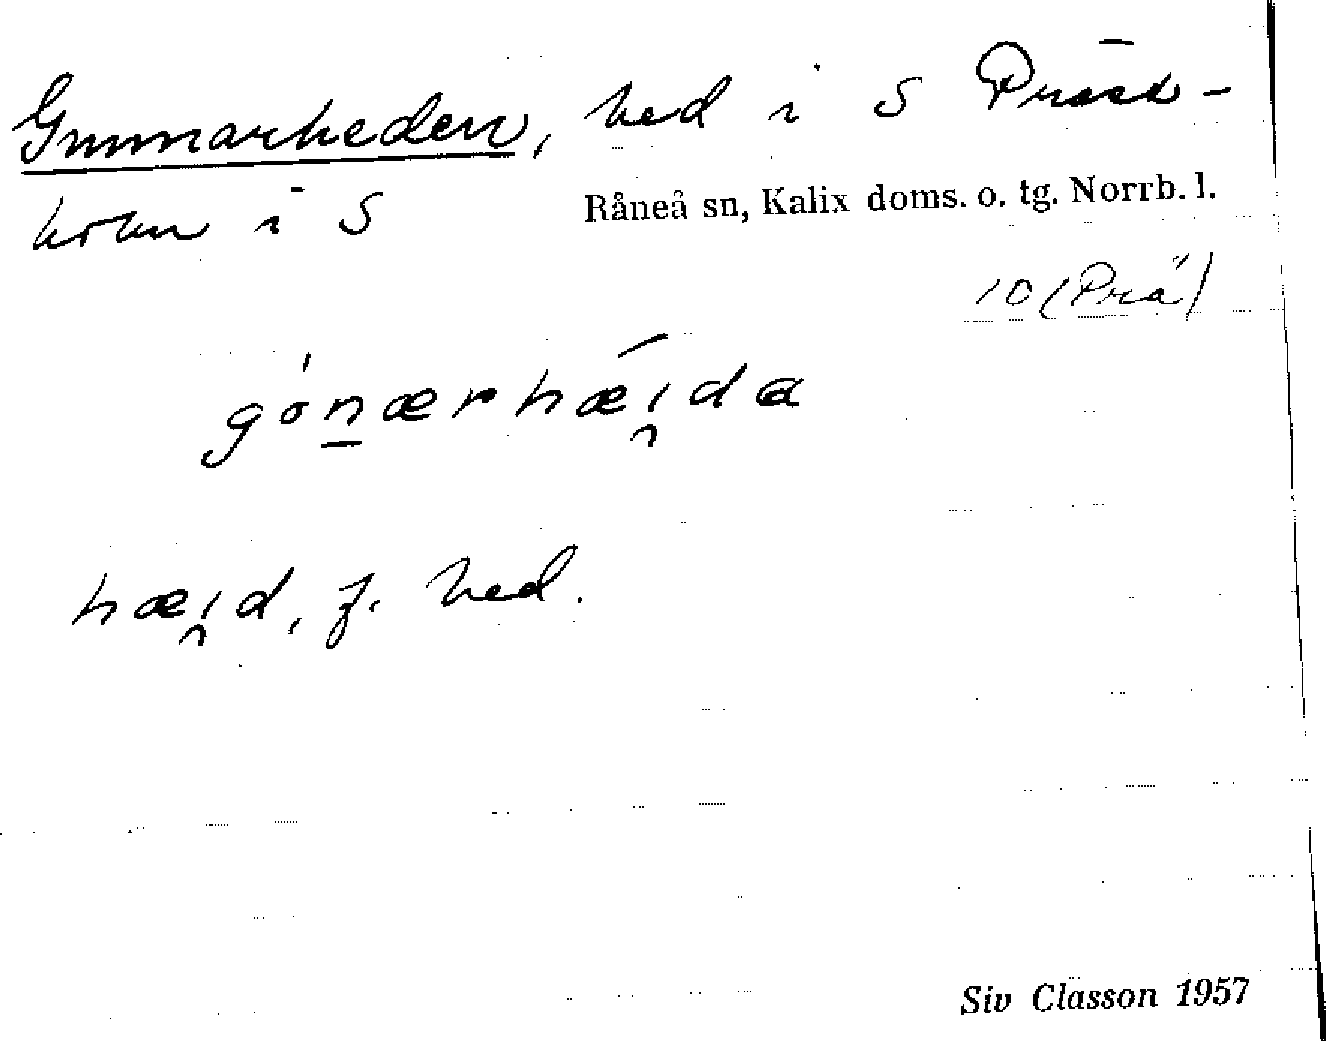 Gunnarheden, hed i S Präst-
holm i S
Råneå sn, Kalix doms. o. tg. Norrb. l.
10 (Prä)
gón̲ærhæ´i̯da
hæi̯d, f. hed.
Siv Classon 1957